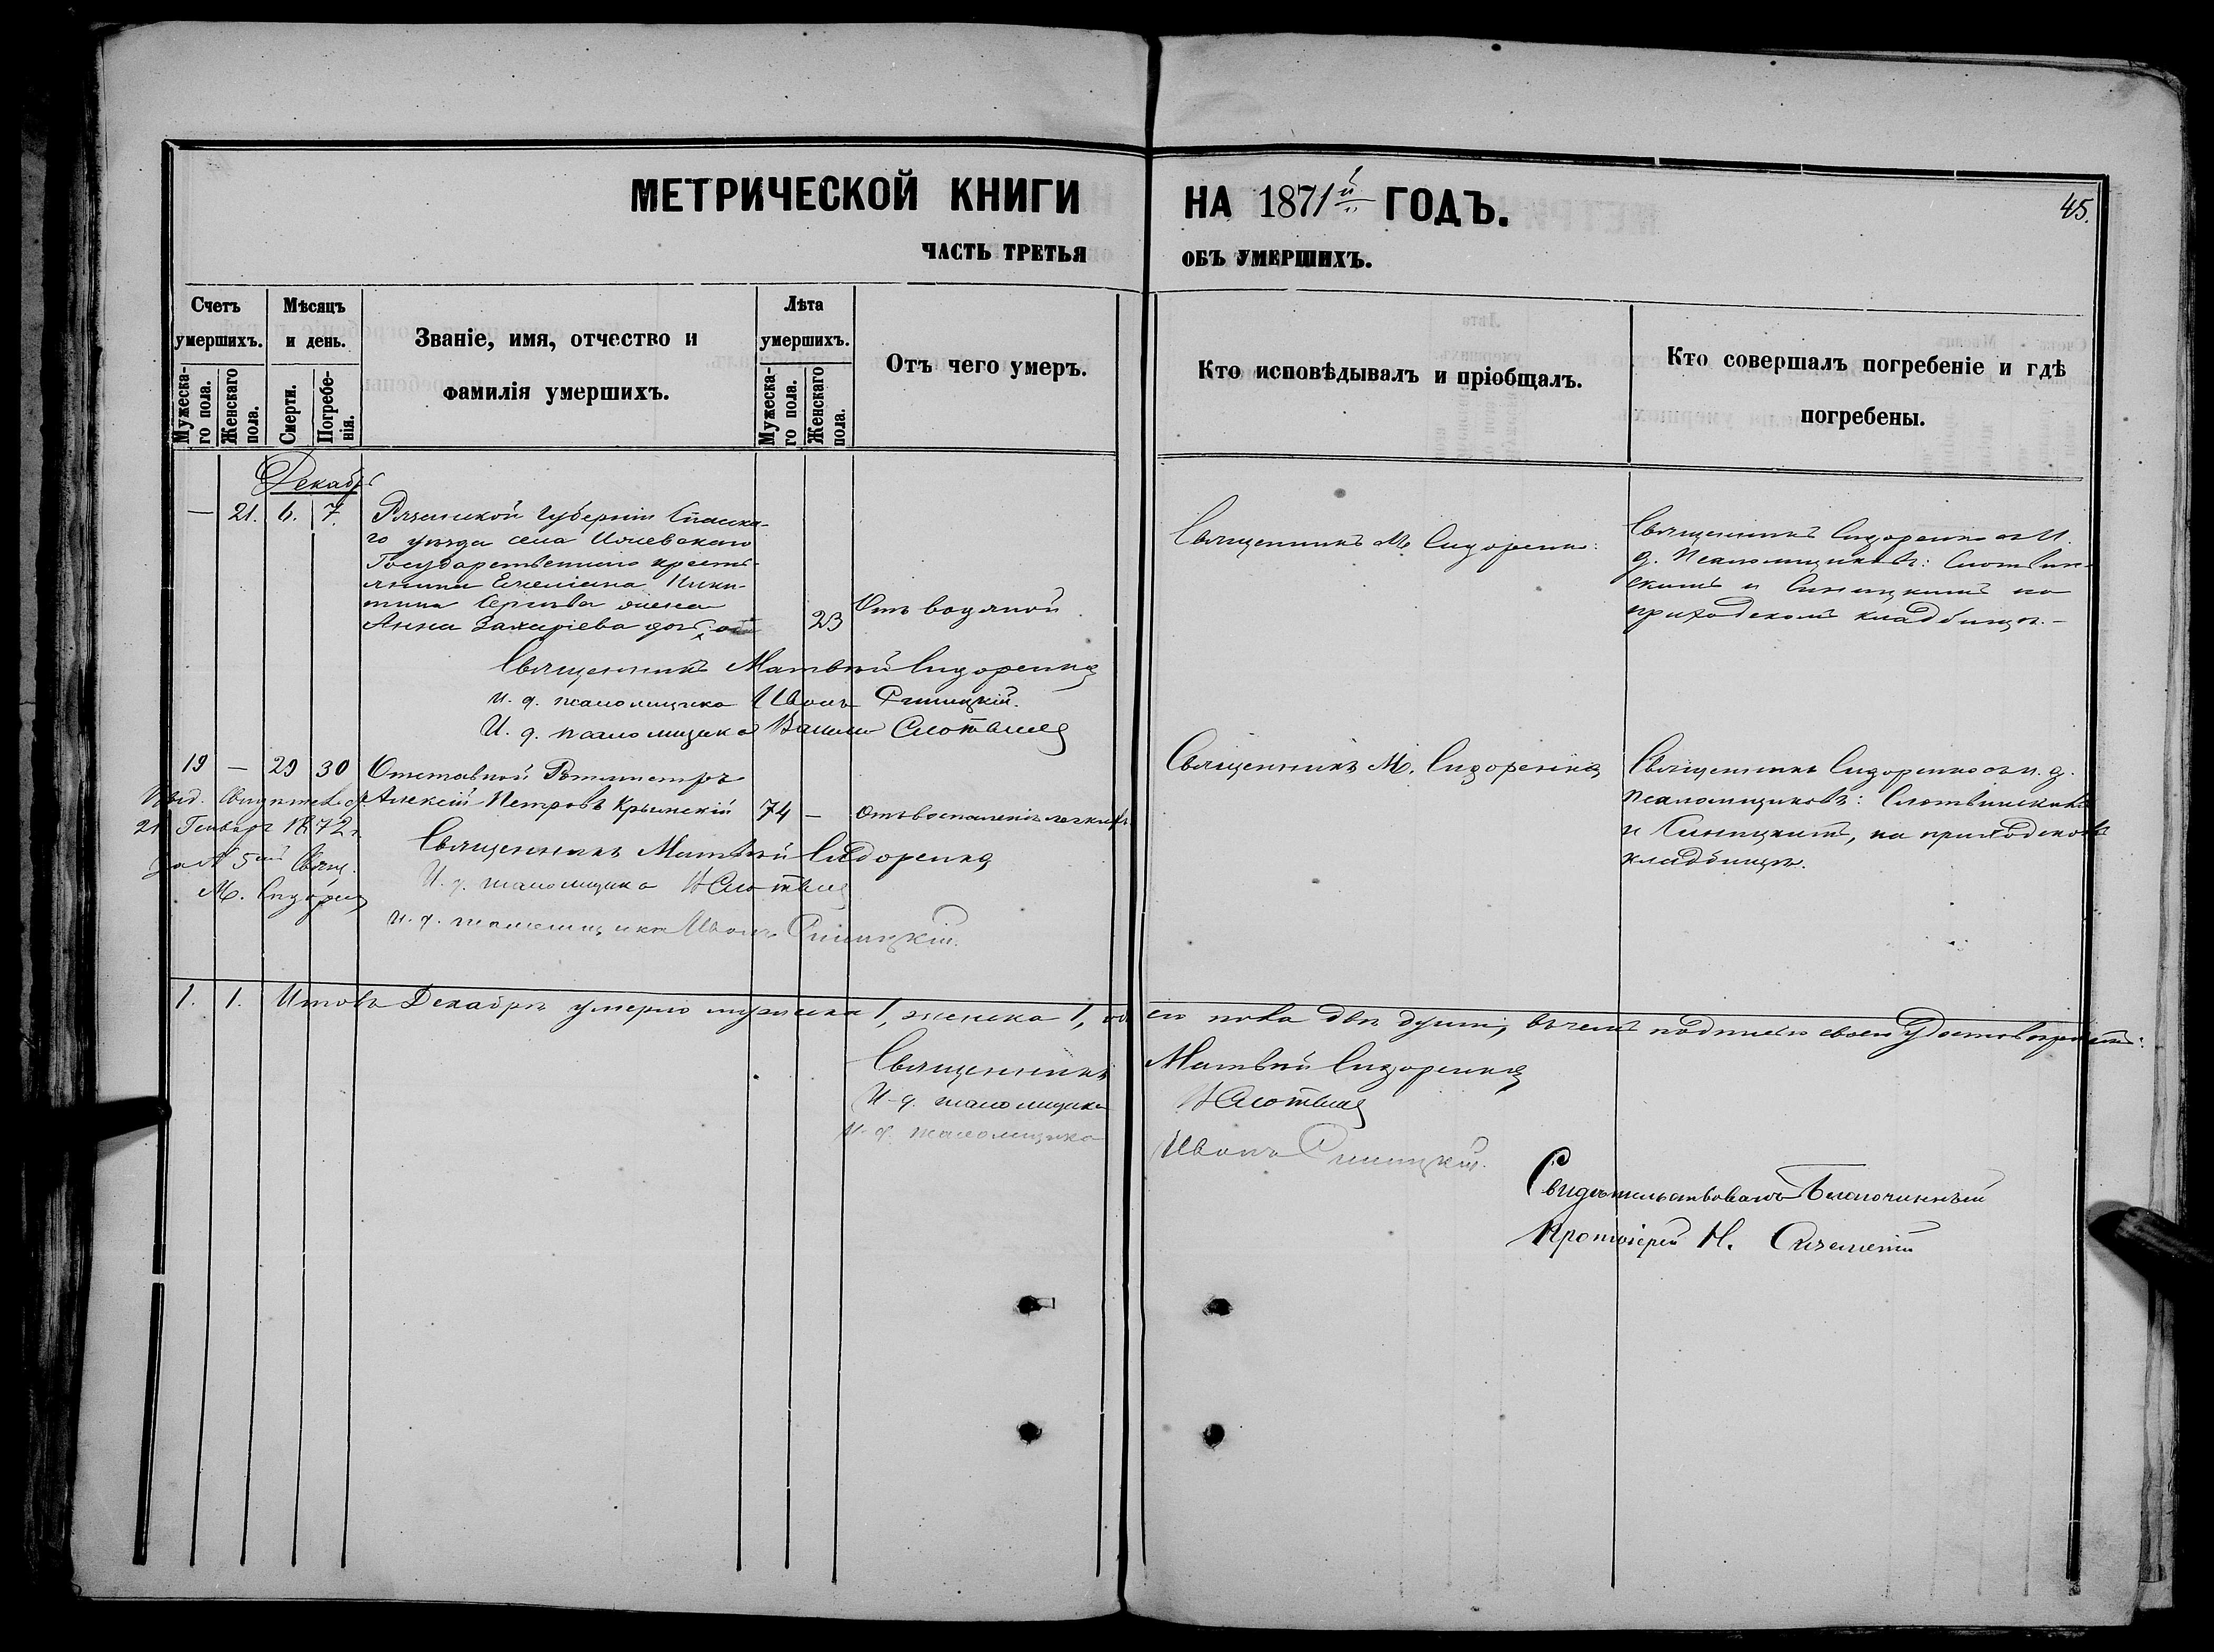 МЕТРИЧЕСКОЙ КНИГИ НА 1871й ГОДЪ.
45.
ЧАСТЬ ТРЕТЬЯ ОБЪ УМЕРШИХЪ.
Счетъ умершихъ.
Мужеска-го пола.
Женскаго пола.
Мѣсяцъ и день.
Смерти.
Погребе-нія.
Званіе, имя, отчество и фамилія умершихъ.
Лѣта умершихъ.
Мужеска-го пола.
Женскаго пола.
Отъ чего умеръ.
Кто исповѣдывалъ и пріобщалъ.
Кто совершалъ погребеніе и гдѣ погребены.
Декабрь
— 21. 6. 7.
Рязанской Губерніи Спаска-
го уѣзда села
Государственнаго кресть-
янина Емеліана Ники-
тина Сергѣева жена
Анна Захаріева
23
Отъ водяной
Священникъ М. Сидоренко
Священникъ Сидоренко съ И.
д. Псаломщиковъ: Слотвин-
скимъ и Синицкимъ на
приходскомъ кладбищѣ.-
Священникъ Матвѣй Сидоренко
И. д. псаломщика Иванъ Синицкій.
И. д. псаломщика
19 — 29 30
Отставной Ротмистръ
Алексій Петровъ Крымскій
74 —
Отъ воспаленія легкихъ
Священникъ М. Сидоренко
Священникъ Сидоренко съ и. д.
псаломщиковъ: Слотвинскимъ
и Синицкимъ, на приходскомъ
кладбищѣ.
21 Генваря 1872 г.
за № 5мъ Свящ.
М. Сидоренко
Священникъ Матвѣй Сидоренко
И. д. псаломщика
И. д. псаломщика Иванъ Синицкій.
1. 1. Итого въ Декабрѣ умерло мужеска 1, женска 1, обоего пола двѣ души, въ чемъ подписью своею удостовѣряемъ:
Священникъ Матвѣй Сидоренко
И. д. псаломщика
И. д. псаломщика Иванъ Синицкій.
Свидѣтельствовалъ Благочинный
Протоіерей Н.